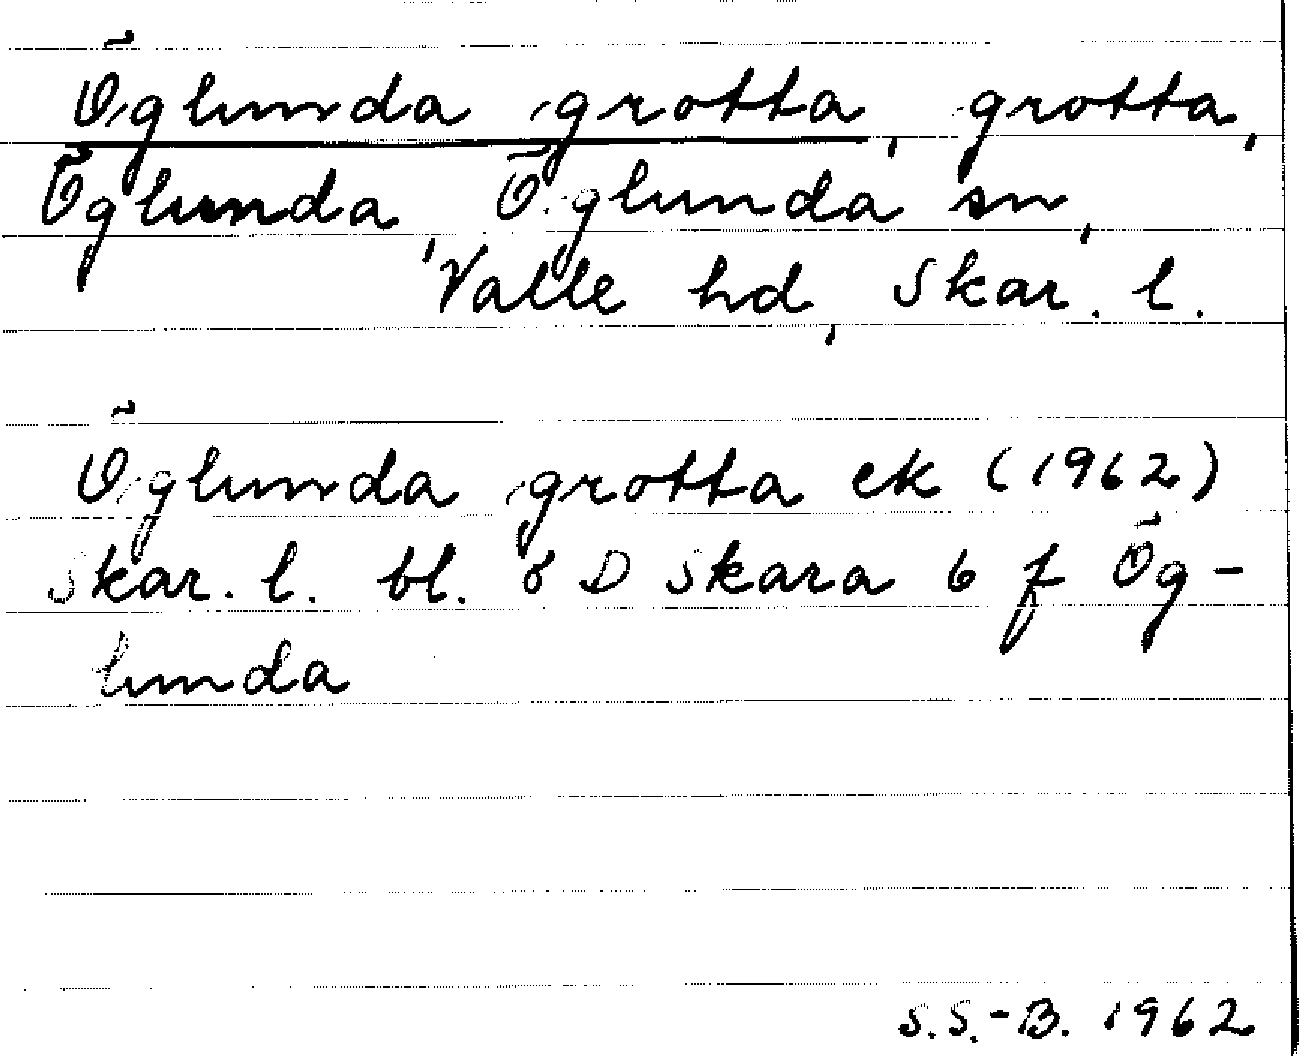 Öglunda grotta, grotta,
Öglunda, Öglunda sn,
Valle hd, Skar. l.
Öglunda grotta ek (1962)
Skar. l. bl. 8 D Skara 6 f Ög-
lunda
S.S.-B. 1962